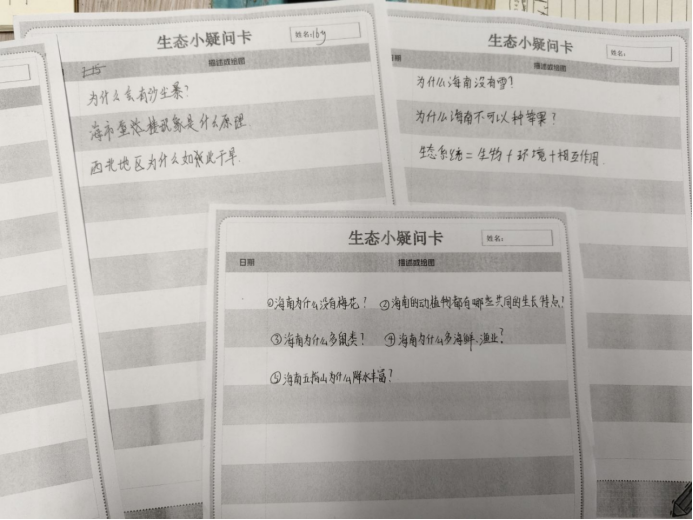 生态小疑问卡
姓名:
描述或绘图
为什么会有沙尘暴?
海市蜃楼
现象是什么原理
西北地区为什么如此干旱.
生态小疑问卡
姓名:
日期
描述或绘图
为什么海南没有雪?
为什么海南不可以种苹果?
生态系统=生物+环境+相互作用.
生态小疑问卡
姓名:
日期
描述或绘图
①海南为什么没有梅花! ②海南的动植物都有哪些共同的生长特点!
③海南为什么多鼠类? ④海南为什么多海鲜、渔业?
⑤海南五指山为什么降水丰富?